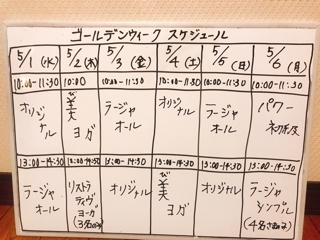 ゴールデンウィーク スケジュール
5/1(水) 5/2(木) 5/3(金) 5/4(土) 5/5(日) 5/6(月)
10:00-11:30 10:00 10:00-11:30 10:00-11:30 10:00-11:30 10:00-11:30
オリジナル 美ヨガ ラージャオール オリジナル ラージャオール パワー
13:00-14:30 13:00-14:30 13:00-14:30 13:00-14:30 13:00-14:30 13:00-14:30
ラージャオール リストラティヴヨーガ オリジナル 美ヨガ オリジナル ラージャシンプル